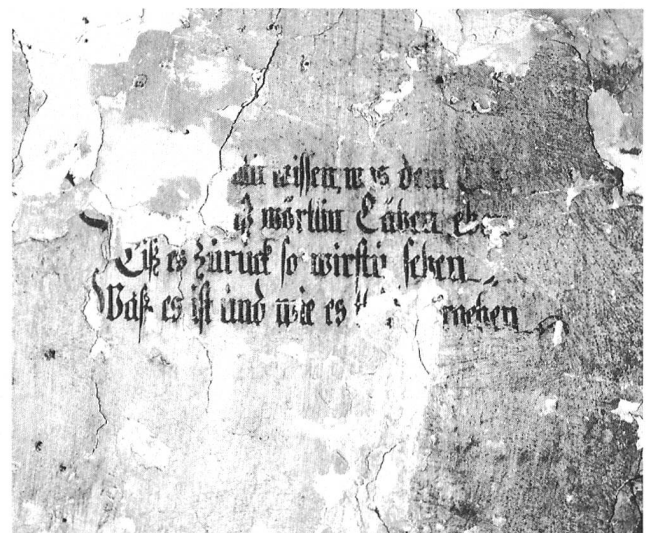 wissen, was dein
wörtlin Läben
Liß es zurück so wirstu sehen
Waß es ist und wie es